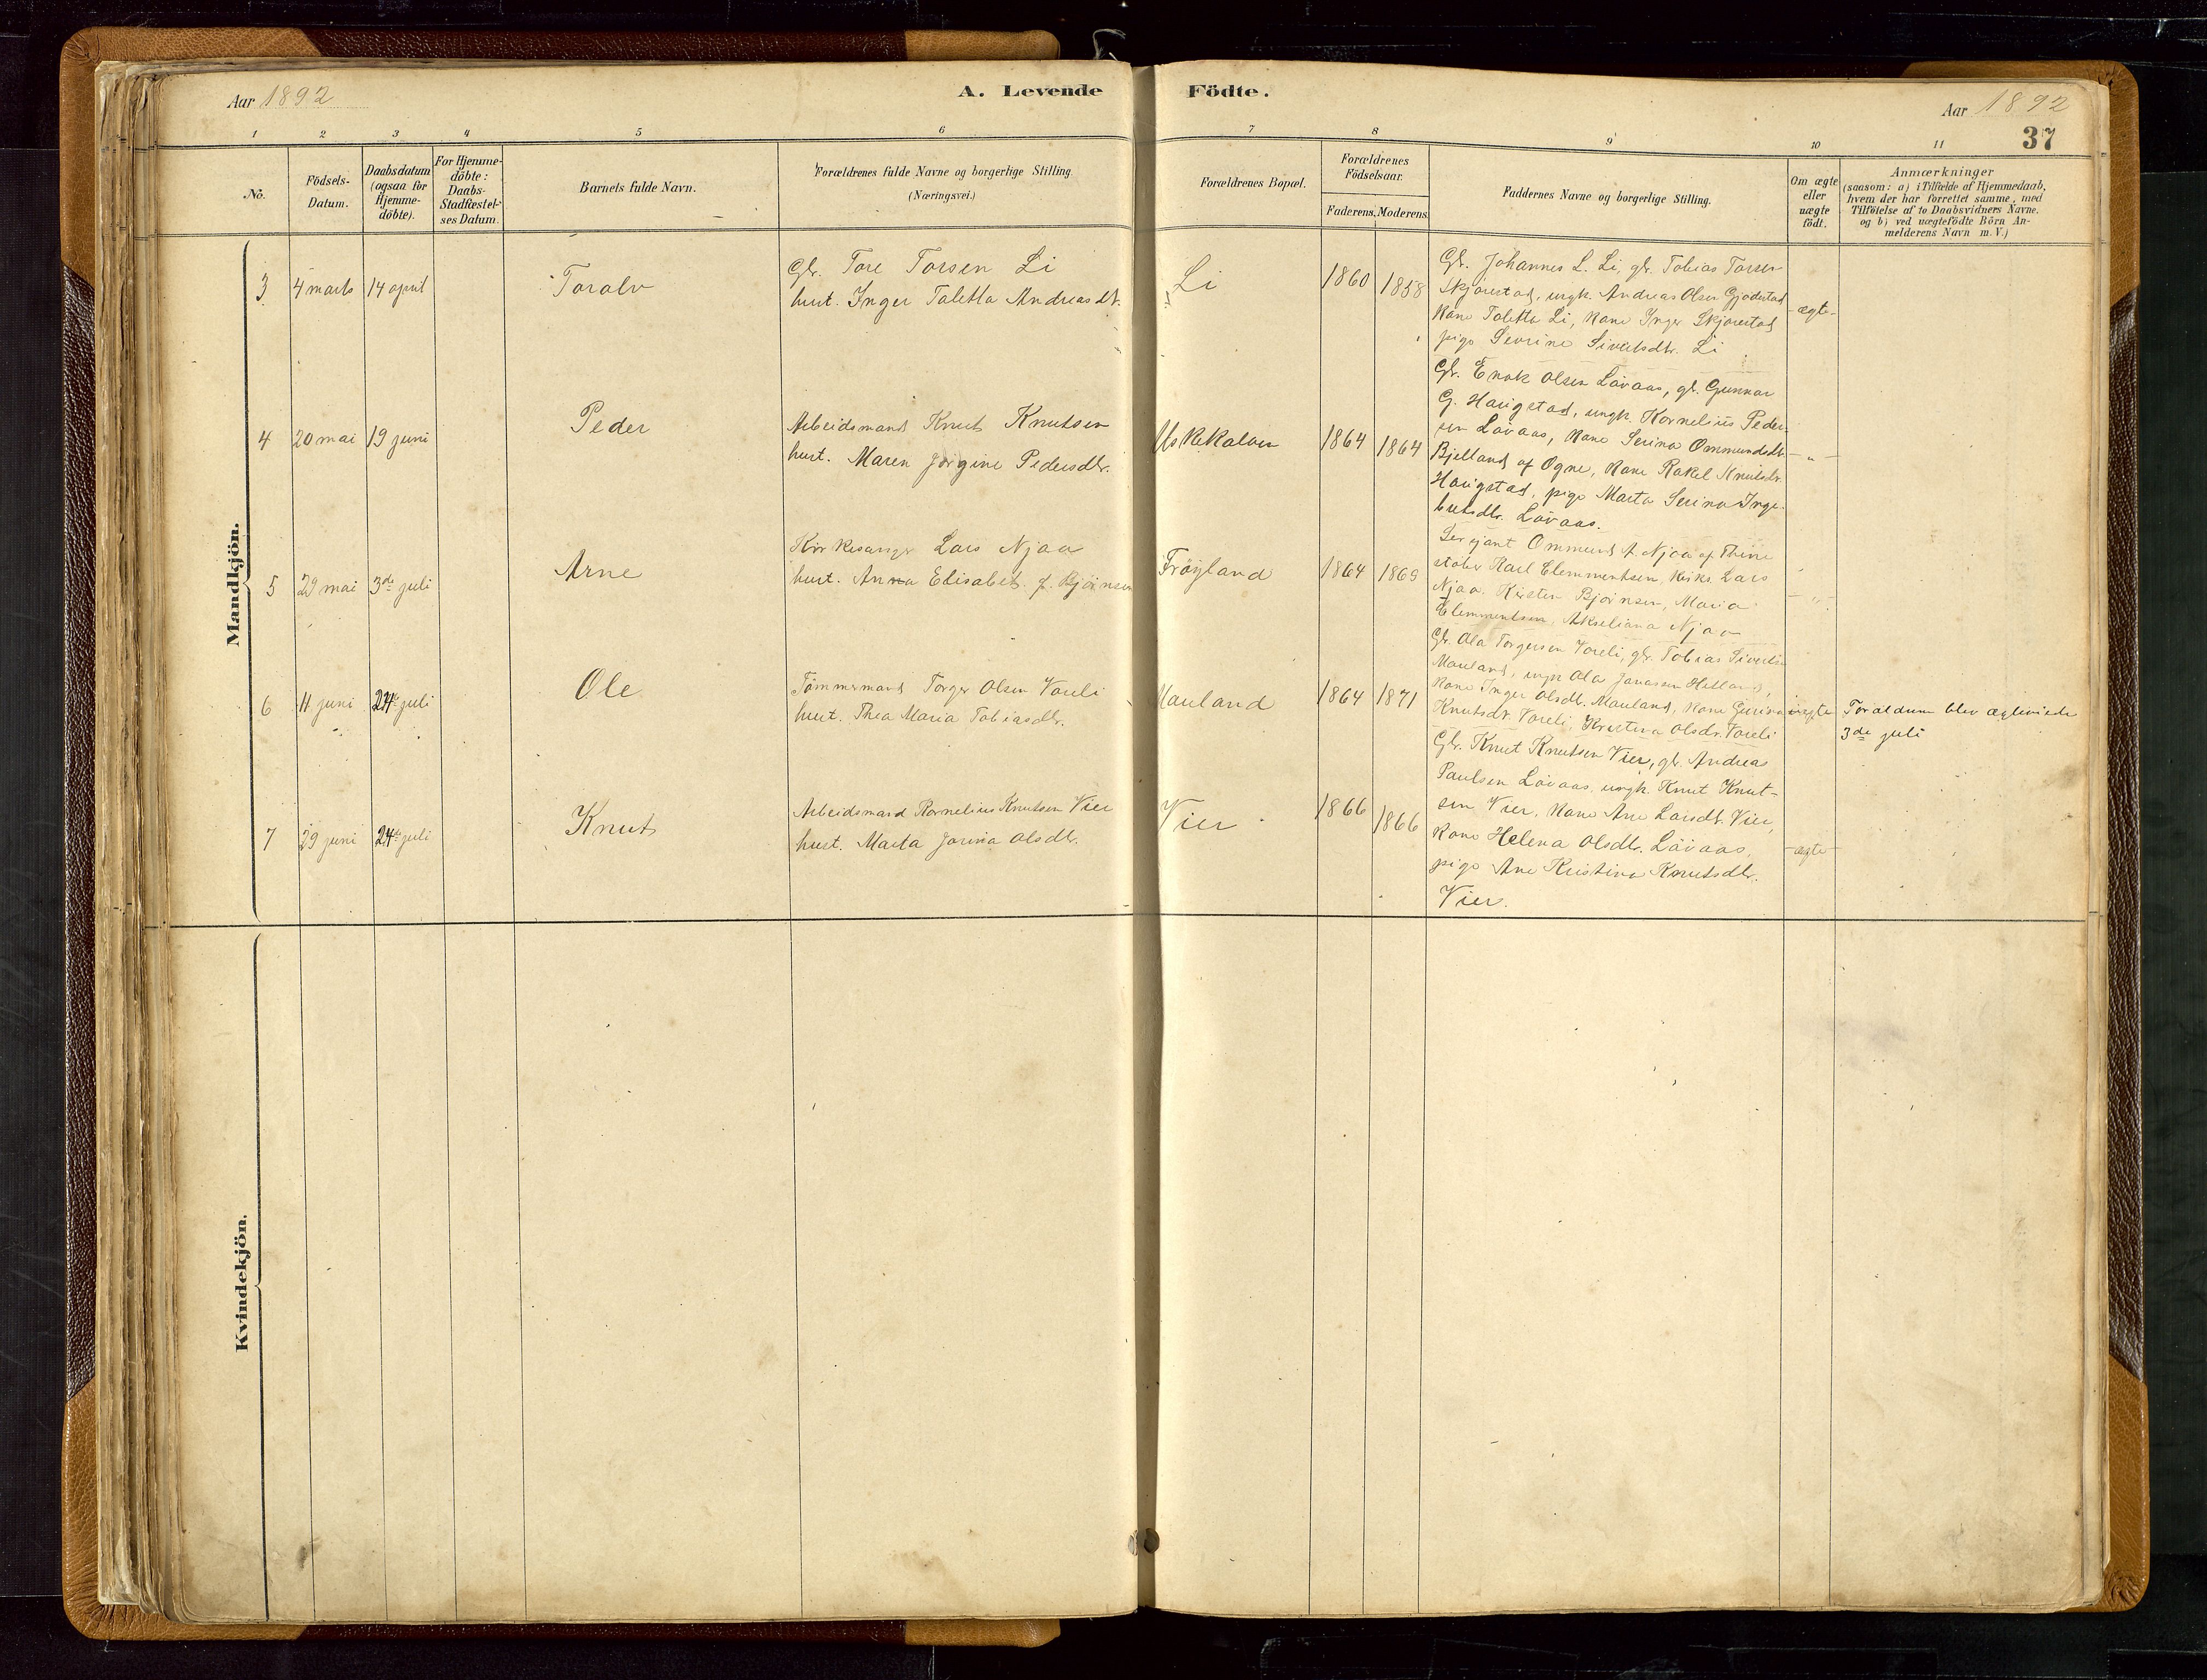 Aar 1892
A. Levende Födte.
Aar 1892
37
1 2 3 4 5 6 7 8 9 10 11
No.
Födsels-Datum.
Daabsdatum (ogsaa for Hjemme-döbte).
For Hjemme-döbte: Daabs-Stadfæstel-ses Datum.
Barnets fulde Navn.
Forældrenes fulde Navne og borgerlige Stilling.
(Næringsvei.)
Forældrenes Bopæl.
Forældrenes Födselsaar.
Faderens. Moderens.
Faddernes Navne og borgerlige Stilling.
Om ægte eller uægte födt.
Anmærkninger
(saasom: a) i Tilfælde af Hjemmedaab,
hvem der har forrettet samme, med
Tilföielse af to Daabsvidners Navne.
og b) ved uægtefödte Börn An-
melderens Navn m. V.)
Mandkjön.
3 4 marts 14 april Toralv
Gbr. Tore Torsen Li
hust. Inger Taletta Andreasdt.
Li 1860 1858
Gbr. Johannes L. Li, gbr. Tobias Torsen
Skjørestad, ungk. Andreas Olsen Gjødestad
Kone Taletta Li, Kone Inger Skjørestad
pige Sevrine Sivertsdtr. Li
ægte
4 20 mai 19 juni Peder
Arbeidsmand Knut Knutsen
hust. Maren Jørgine Pedersdtr.
Uskekalven 1864 1864
Gbr. Enok Olsen Løvaas, gb. Gunnar
G. Haugstad, ungk. Kornelius Peder-
sen Løvaas, Kone Serina Ommundsdtr.
Bjelland af Ogne, Kone Rakel Knutsdtr.
Haugstad, pige Marta Serina Inge-
bretsdtr. Løvaas.
"
5 29 mai 3de juli Arne
Kirkesanger Lars Njaa
hust. Anna Elisabet f. Bjørnsen
Frøyland 1864 1869
Sersjant Ommund A Njaa af Thime
Karl Clemmentsen, Lars
Njaa. Kirsten Bjørnsen, Maria
Clemmentsen, Akseliana Njaa
"
6 11 juni 24de juli Ole
Tømmermand Torger Olsen Voreli
hust. Thea Maria Tobiasdtr.
Mauland 1864 1871
Gbr. Ola Torgersen Voreli, gbr. Tobias Sivertsen
Mauland, ungk Ola Jonassen Hetland,
Kone Inger Olsdtr. Mauland, Kone Gurina
Knutsdtr. Voreli, Kristina Olsdr. Voreli
uægte
Forældrene blev ægteviede
3de juli
7 29 juni 24de juli Knut
Arbeidsmand Kornelius Knutsen Vier
hust. Marta Jorina Olsdtr.
Vier 1866 1866
Gbr. Knut Knutsen Vier, gb. Andreas
Paulsen Løvaas, ungk. Knut Knut-
sen Vier, Kone Ane Larsdtr. Vier,
Kone Helena Olsdtr. Løvaas,
pige Ane Kristine Knutsdtr.
Vier.
ægte
Kvindekjön.